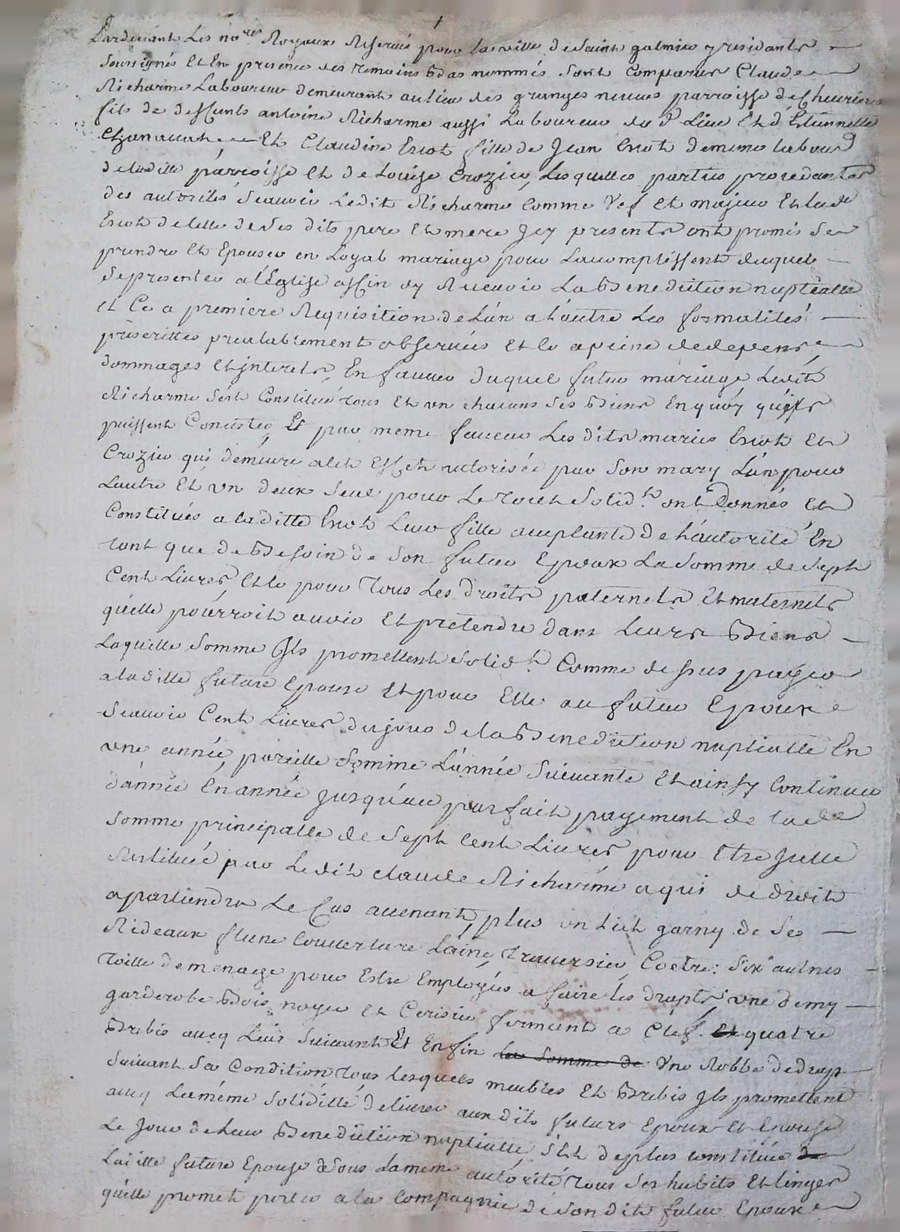 Pardevant Les no.res Royaux Reservé pour la ville de Saint galmier y residants
Soussignés Et En presence des temoins bas nommés. Sont Comparus Claude
Richarme Laboureur demeurant au lieu des granges neuves parroisse de Chevrieres
fils de deffunts antoine Richarme aussi Laboureur du d.t Lieu Et d'Etiennette
Et Claudine Criot fille de Jean Criot de meme labour.
de ladite parroisse Et de Louise Crozier, Lesquelles parties procedantes
des autorités Scavoir Ledit Richarme comme vef et majeur Et lade
Criot de celle de Ses dits pere Et mere Icy presents ont promis Se
prendre Et Epouser en Loyal mariage pour Lacomplissent duquel
Se presenter a l'Eglise affin dy Recevoir La Benediction nuptialle
Et Ce a premiere Requisition de L'un a L'autre Les formalités
prescrittes prealablement observées Et ce a peine de depens
dommages Et jnterets En faveur duquel futur mariage Ledit
Richarme Sest Constitué tous Et un chacuns Ses Biens En quoy qu'ils
puissent Consister, Et par meme faveur Les dits mariés Criot Et
Crozier qui demeure a cet Effet autorisée par Son mary L'un pour
Lautre Et un deux Seul pour Le tout Solid.t ont Donnés Et
Constitués a laditte Criot Leur fille augmentant de L'autorité En
tant que de Besoin de Son futur Epoux La Somme de Sept
Cent Livres, Et ce pour tous Les droits paternels Et maternels
qu'elle pourroit avoir Et pretendre dans Leurs Biens
Laquelle Somme Ils promettent Solid.t Comme dessus payer
a laditte future Epouse Et pour Elle au futur Epoux
Scavoir Cent Livres du jour de la Benediction nuptialle En
une année, pareille Somme L'année Suivante Et ainsy Continuer
d'année En année jusqu'au parfait payement de lade
Somme principalle de Sept Cent Livres pour Etre Icelle
Restituée par Ledit Claude Richarme a qui de droit
apartiendra Le Cas avenant, plus un Lict garny de Se
Rideaux d'une Couverture Laine, traversier, Coetre, Six aulnes
toille de menage pour Estre Employés a faire les draps, une demy
garderobe Bois noyer et Cerisier fermant a Clef. Et quatre
Brebis avecq Leur Suivant Et Enfin la Somme de Une Robbe de drap
Suivant Sa Condition tous lesquels meubles Et Brebis Ils promettent
avecq La même Solidité delivrer aux dits futurs Epoux Et Epouse
Le Jour de Leur Benediction nuptialle S'Est de plus Constituée de
Laditte future Epouse de Sous La meme autorité tous Ses habits Et Linges
qu'elle promet porter a la Compagnie de Son dit futur Epoux